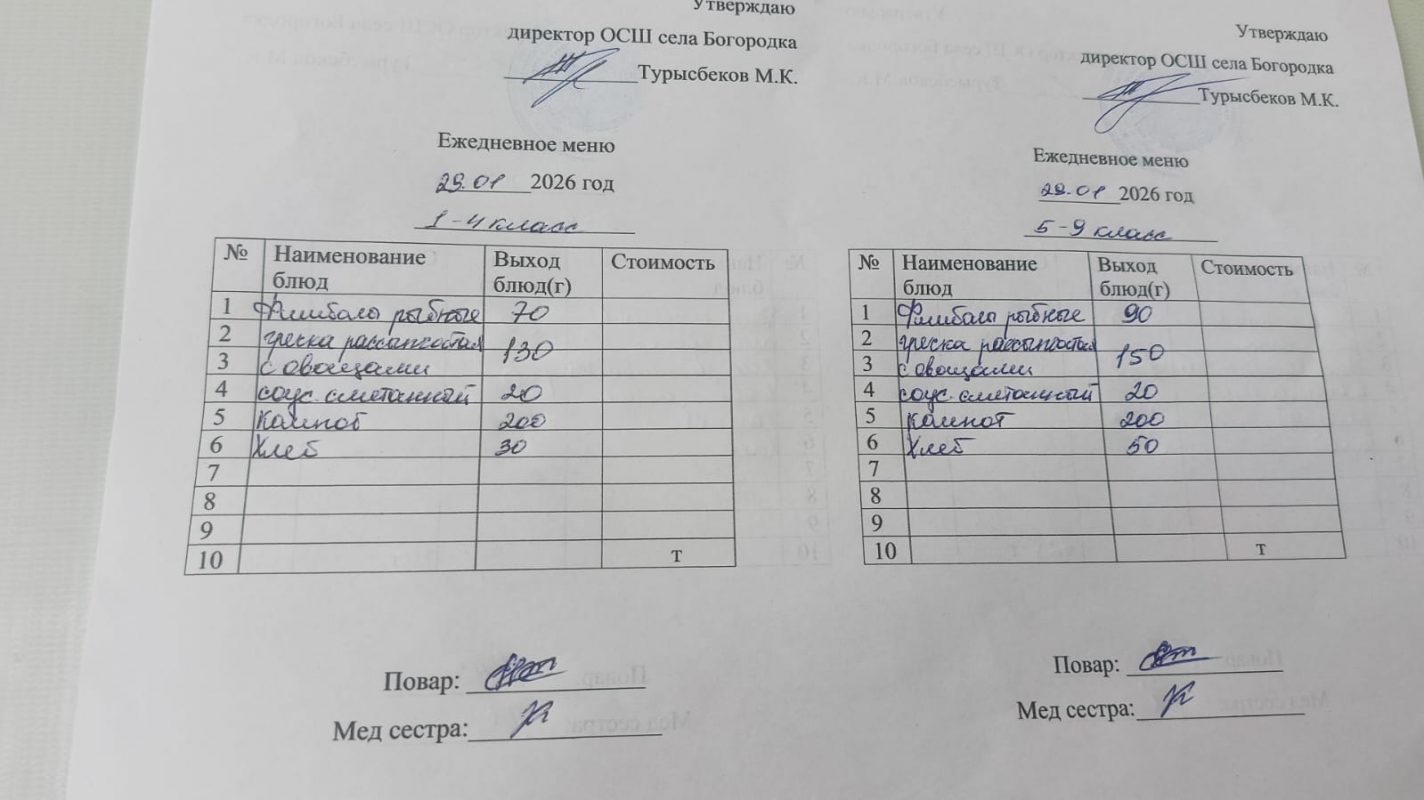 Утверждаю
директор ОСШ села Богородка
Турысбеков М.К.
Ежедневное меню
29.01 2026 год
1-4 класс
№ Наименование блюд Выход блюд(г) Стоимость
1 рыбные 70
2 гречка рассыпчатая 130
3 с овощами
4 соус сметанный 20
5 Компот 200
6 Хлеб 30
7
8
9
10 т
Повар:
Мед сестра:
Утверждаю
директор ОСШ села Богородка
Турысбеков М.К.
Ежедневное меню
29.01 2026 год
5-9 класс
№ Наименование блюд Выход блюд(г) Стоимость
1 рыбные 90
2 гречка рассыпчатая 150
3 с овощами
4 соус сметанный 20
5 Компот 200
6 Хлеб 50
7
8
9
10 т
Повар:
Мед сестра: